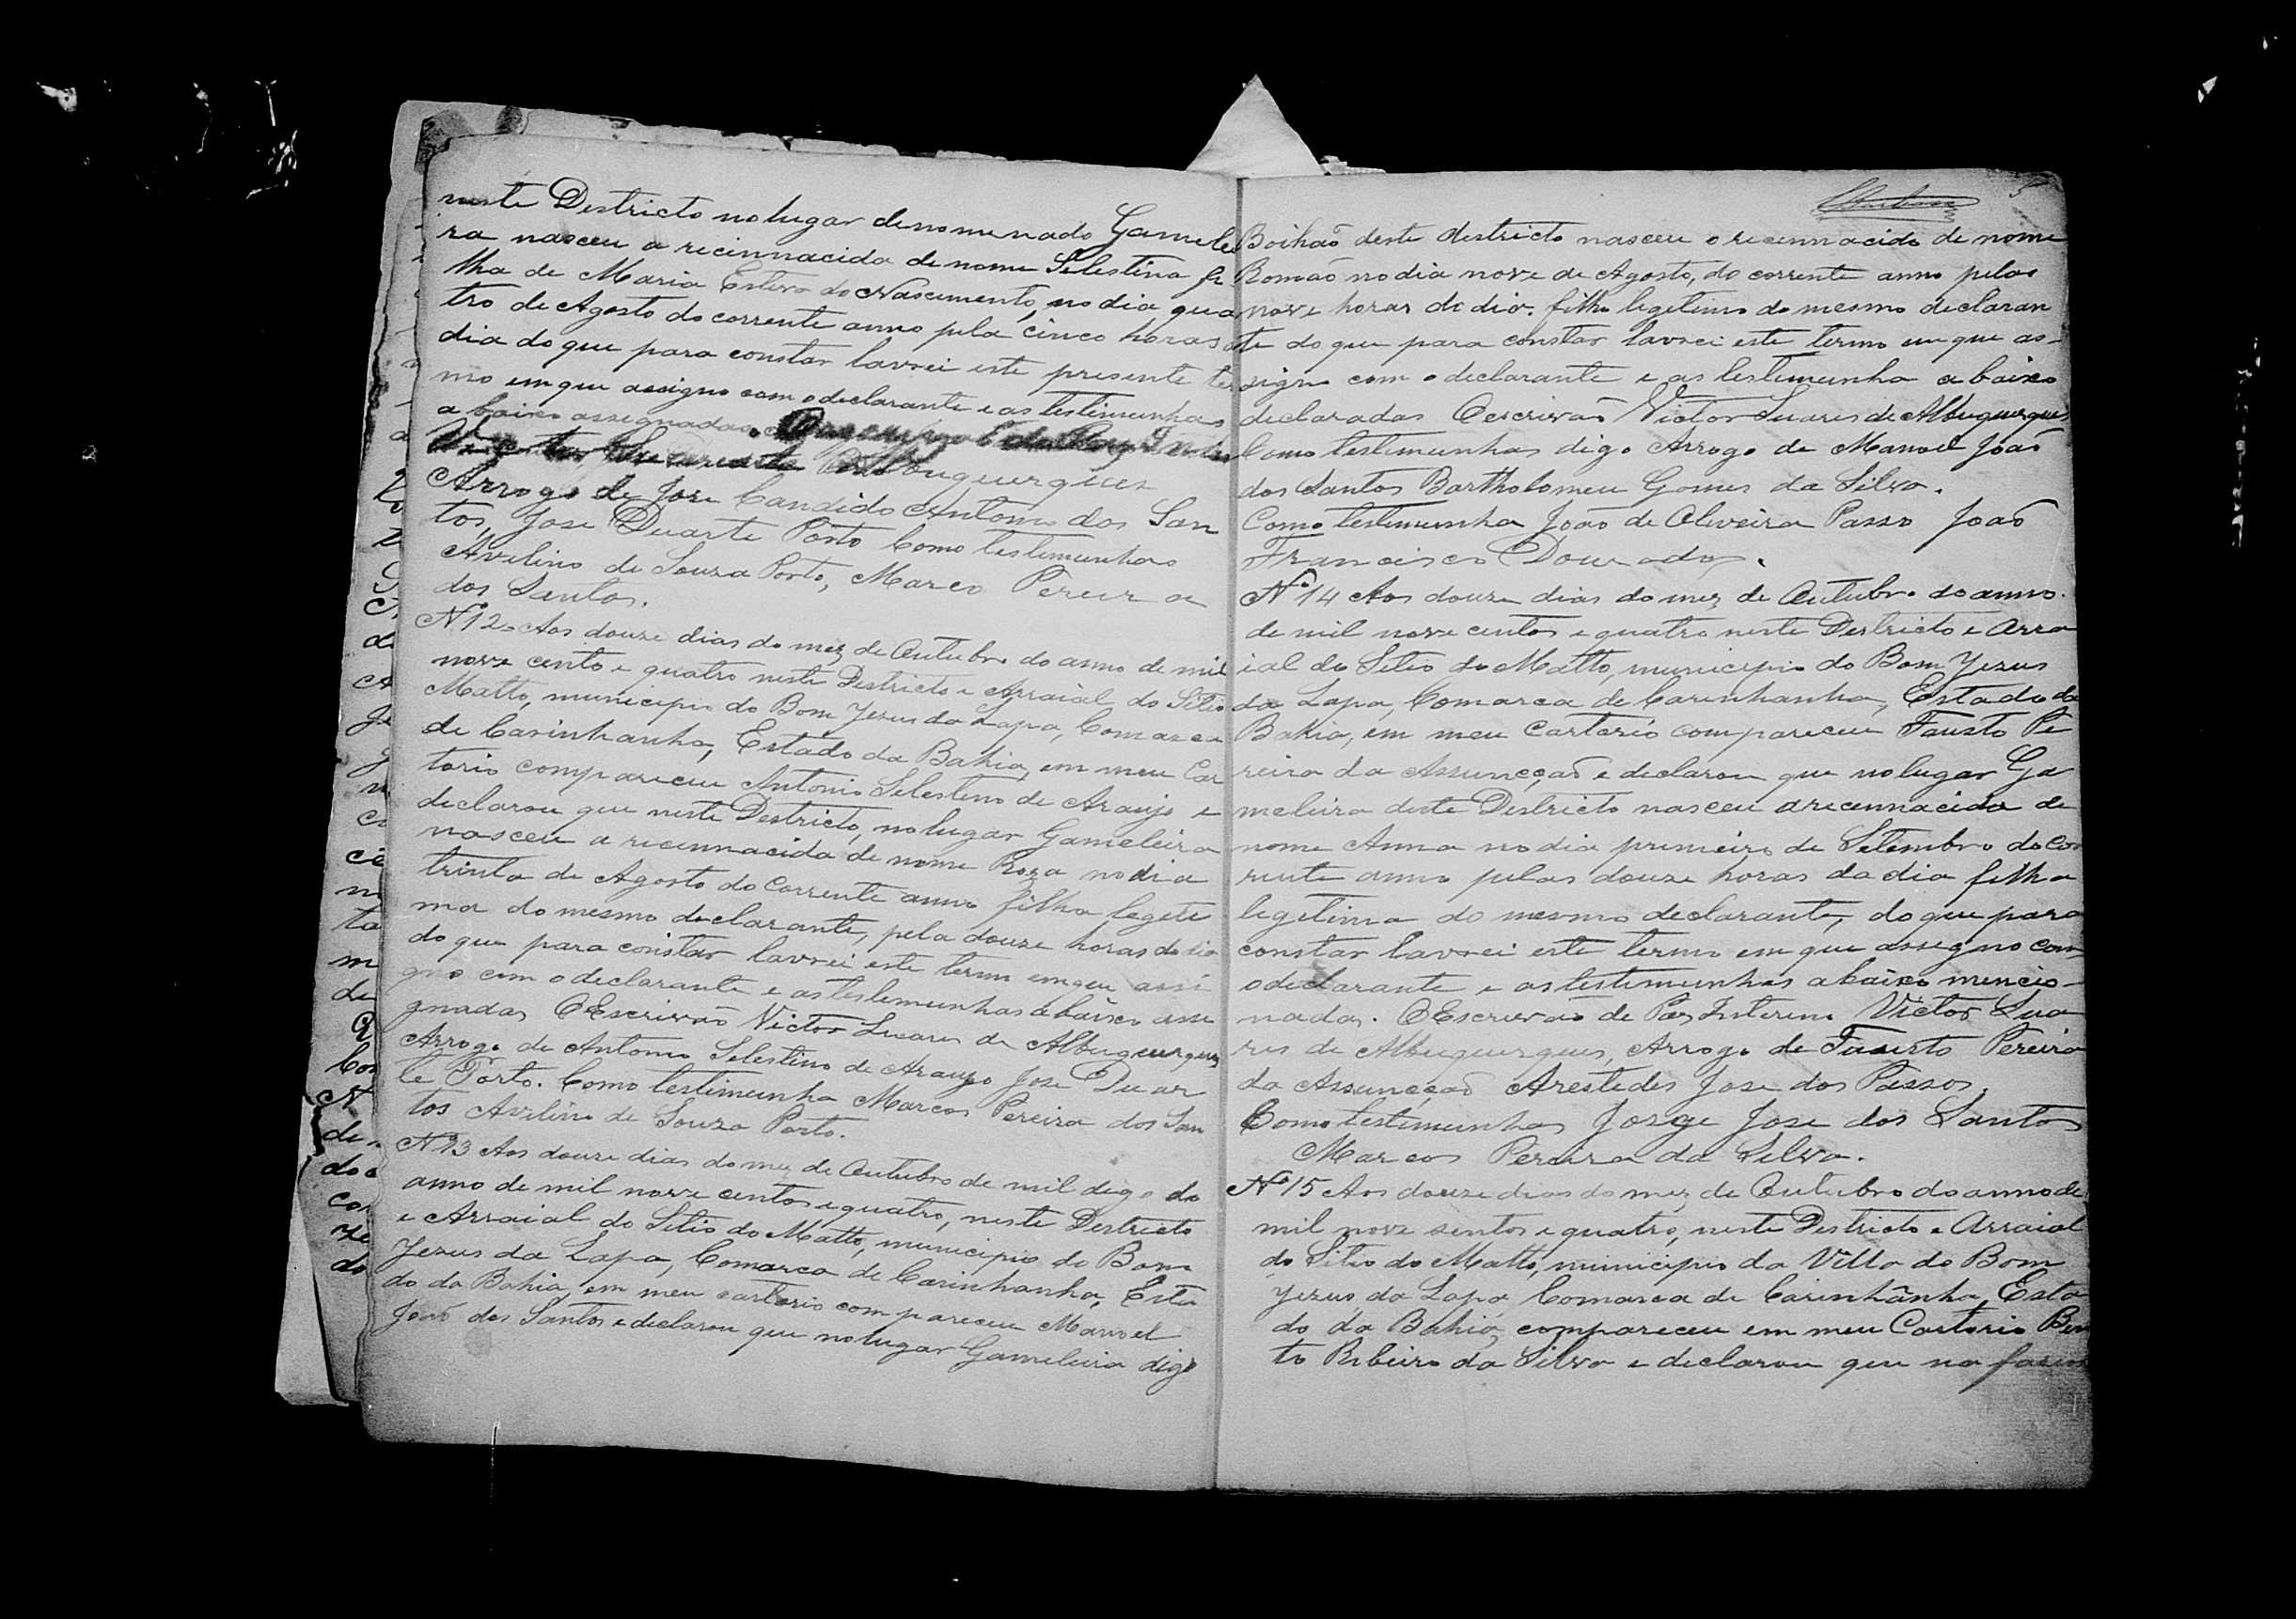 neste Destricto no lugar denomenado Gamele
ra nasceu a recinnacida de nome Selestina fi
lha de Maria Esteva do Nascimento, no dia qua
tro de Agosto do corrente anno pela cinco horas do
dia do que para constar lavrei este presente ter
mo em que assigno com o declarante e as testimunhas
a baixo assegnadas.
Albuquerques
Arrogo de Jose Candido Antonio dos San
tos, Jose Duarte Porto Como testimunhas
Avilino de Souza Porto, Marco Pereira
dos Santos.
Nº 12. Aos douze dias do mez de Outubro do anno de mil
nove cento e quatro neste Destricto e Arraial do Sitio
Matto, municipio do Bom Jezus da Lapa, Comarca
de Carinhanha, Estado da Bahia, em meu Car
torio compareceu Antonio Selestino de Araujo e
declarou que neste Destricto, no lugar Gameleira
nasceu a recennacida de nome Roza no dia
trinta de Agosto do Corrente anno filha legete
ma do mesmo declarante, pela douze horas do dia
do que para constar lavrei este termo em que assi
gno com o declarante e as testemunhas abaixo asse
gnadas O Escrivão Victor Suares de Albuquerques
Arrogo de Antonio Selestino de Araujo Jose Duar
te Porto. Como testimunha Marcos Pereira dos San
tos Avilino de Souza Porto.
Nº 13 Aos douze dias do mez de Outubro de mil digo do
anno de mil nove centos e quatro, neste Destricto
e Arraial do Sitio do Matto, municipio do Bom
Jezus da Lapa, Comarca de Carinhanha, Esta
do da Bahia, em meu cartorio compareceu Manoel
João dos Santos e declarou que no lugar Gameleira digo
5
Boihaõ deste destricto nasceu o recennacido de nome
Romaõ no dia nove de Agosto, do corrente anno pelas
nove horas do dia. filho legetimo do mesmo declaran
te do que para constar lavrei este termo em que as-
signo com o declarante e as testimunha a baixo
declaradas O escrivaõ Victor Suares de Albuquerques
Como testemunhas digo Arrogo de Manoel João
dos Santos Bartholomeu Gomes da Silva.
Como testimunha João de Oliveira Passo João
Francisco Dourado.
Nº 14 Aos douze dias do mez de Outubro do anno
de mil nove centos e quatro neste Destricto e Arra
ial do Sitio do Matto, municipio do Bom Jezus
da Lapa, Comarca de Carinhanha, Estado da
Bahia, em meu Cartorio compareceu Fausto Pe
reira da Assuncçaõ e declarou que no lugar Ga
meleira deste Destricto nasceu a recennacida de
nome Anna no dia primeiro de Setembro do Cor
rente anno pelas douze horas da dia filha
legetima do mesmo declarante, do que para
constar lavrei este termo em que assegno com
o declarante e as testimunhas abaixo mencio-
nadas. O Escrivaõ de Paz Interino Victor Sua
res de Albuquerques, Arrogo de Fausto Pereira
da Assuncçaõ Arestedes Jose dos Passos.
Como testimunhas Jorge Jose dos Santos
Marcos Pereira da Silva.
Nº 15 Aos douze dias do mez de Outubro do anno de
mil nove sentos e quatro, neste Destricto e Arraial
do Sitio do Matto, municipio da Villa do Bom
Jezus da Lapa Comarca de Carinhãnha, Esta
do da Bahia, compareceu em meu Cartorio Ben
to Ribeiro da Silva e declarou que na fasen